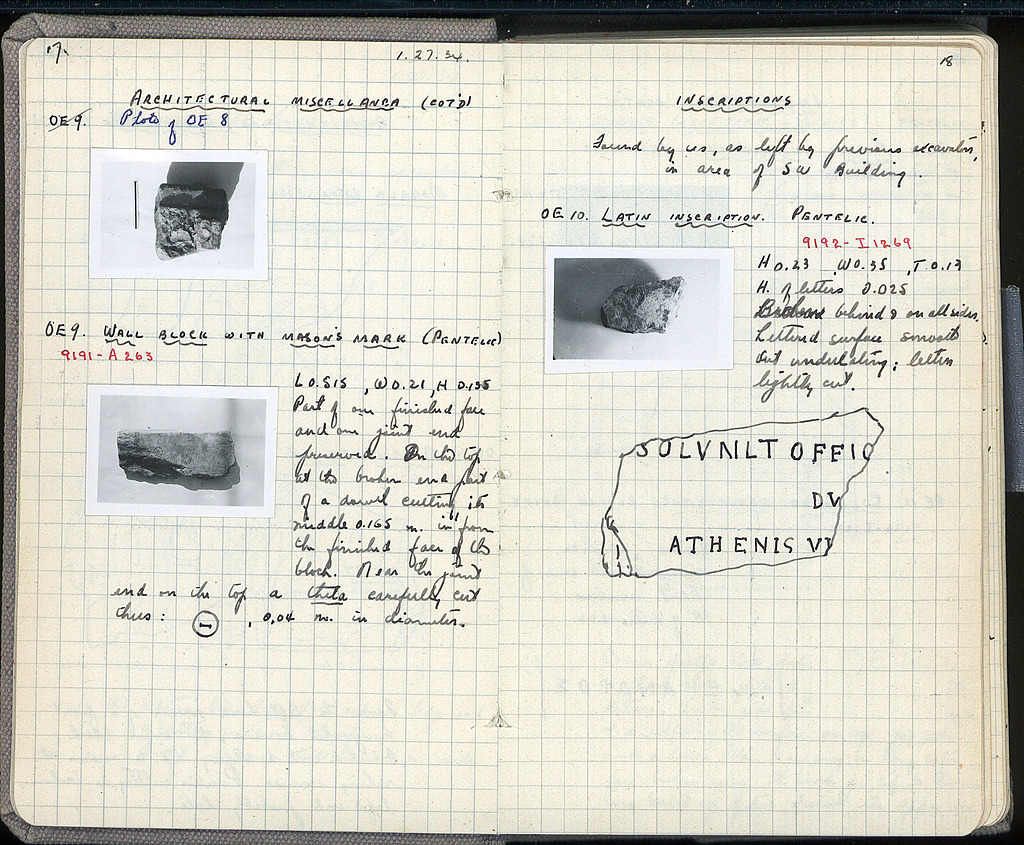 17.
1.27.34.
ARCHITECTURAL MISCELLANEA (COT'D)
OE 9. Photo of OE 8
OE 9. WALL BLOCK WITH MASON'S MARK (PENTELIC)
9191-A 263
L 0.515, W 0.21, H 0.135
Part of one finished face
and one joint end
preserved. On the top
at the broken end part
of a dowel cutting its
middle 0.165 m. in from
the finished face of the
block. Near the joint
end on the top a theta carefully cut
thus: , 0.04 m. in diameter.
18
INSCRIPTIONS
Found by us, as left by previous excavators,
in area of SW Building.
OE 10. LATIN INSCRIPTION. PENTELIC.
9192-I 1269
H 0.23, W 0.35, T 0.13
H. of letters 0.025
Broken behind & on all sides.
Lettered surface smooth
but undulating; letters
lightly cut.
SOLVNLT OFFIC
DV
ATHENIS V